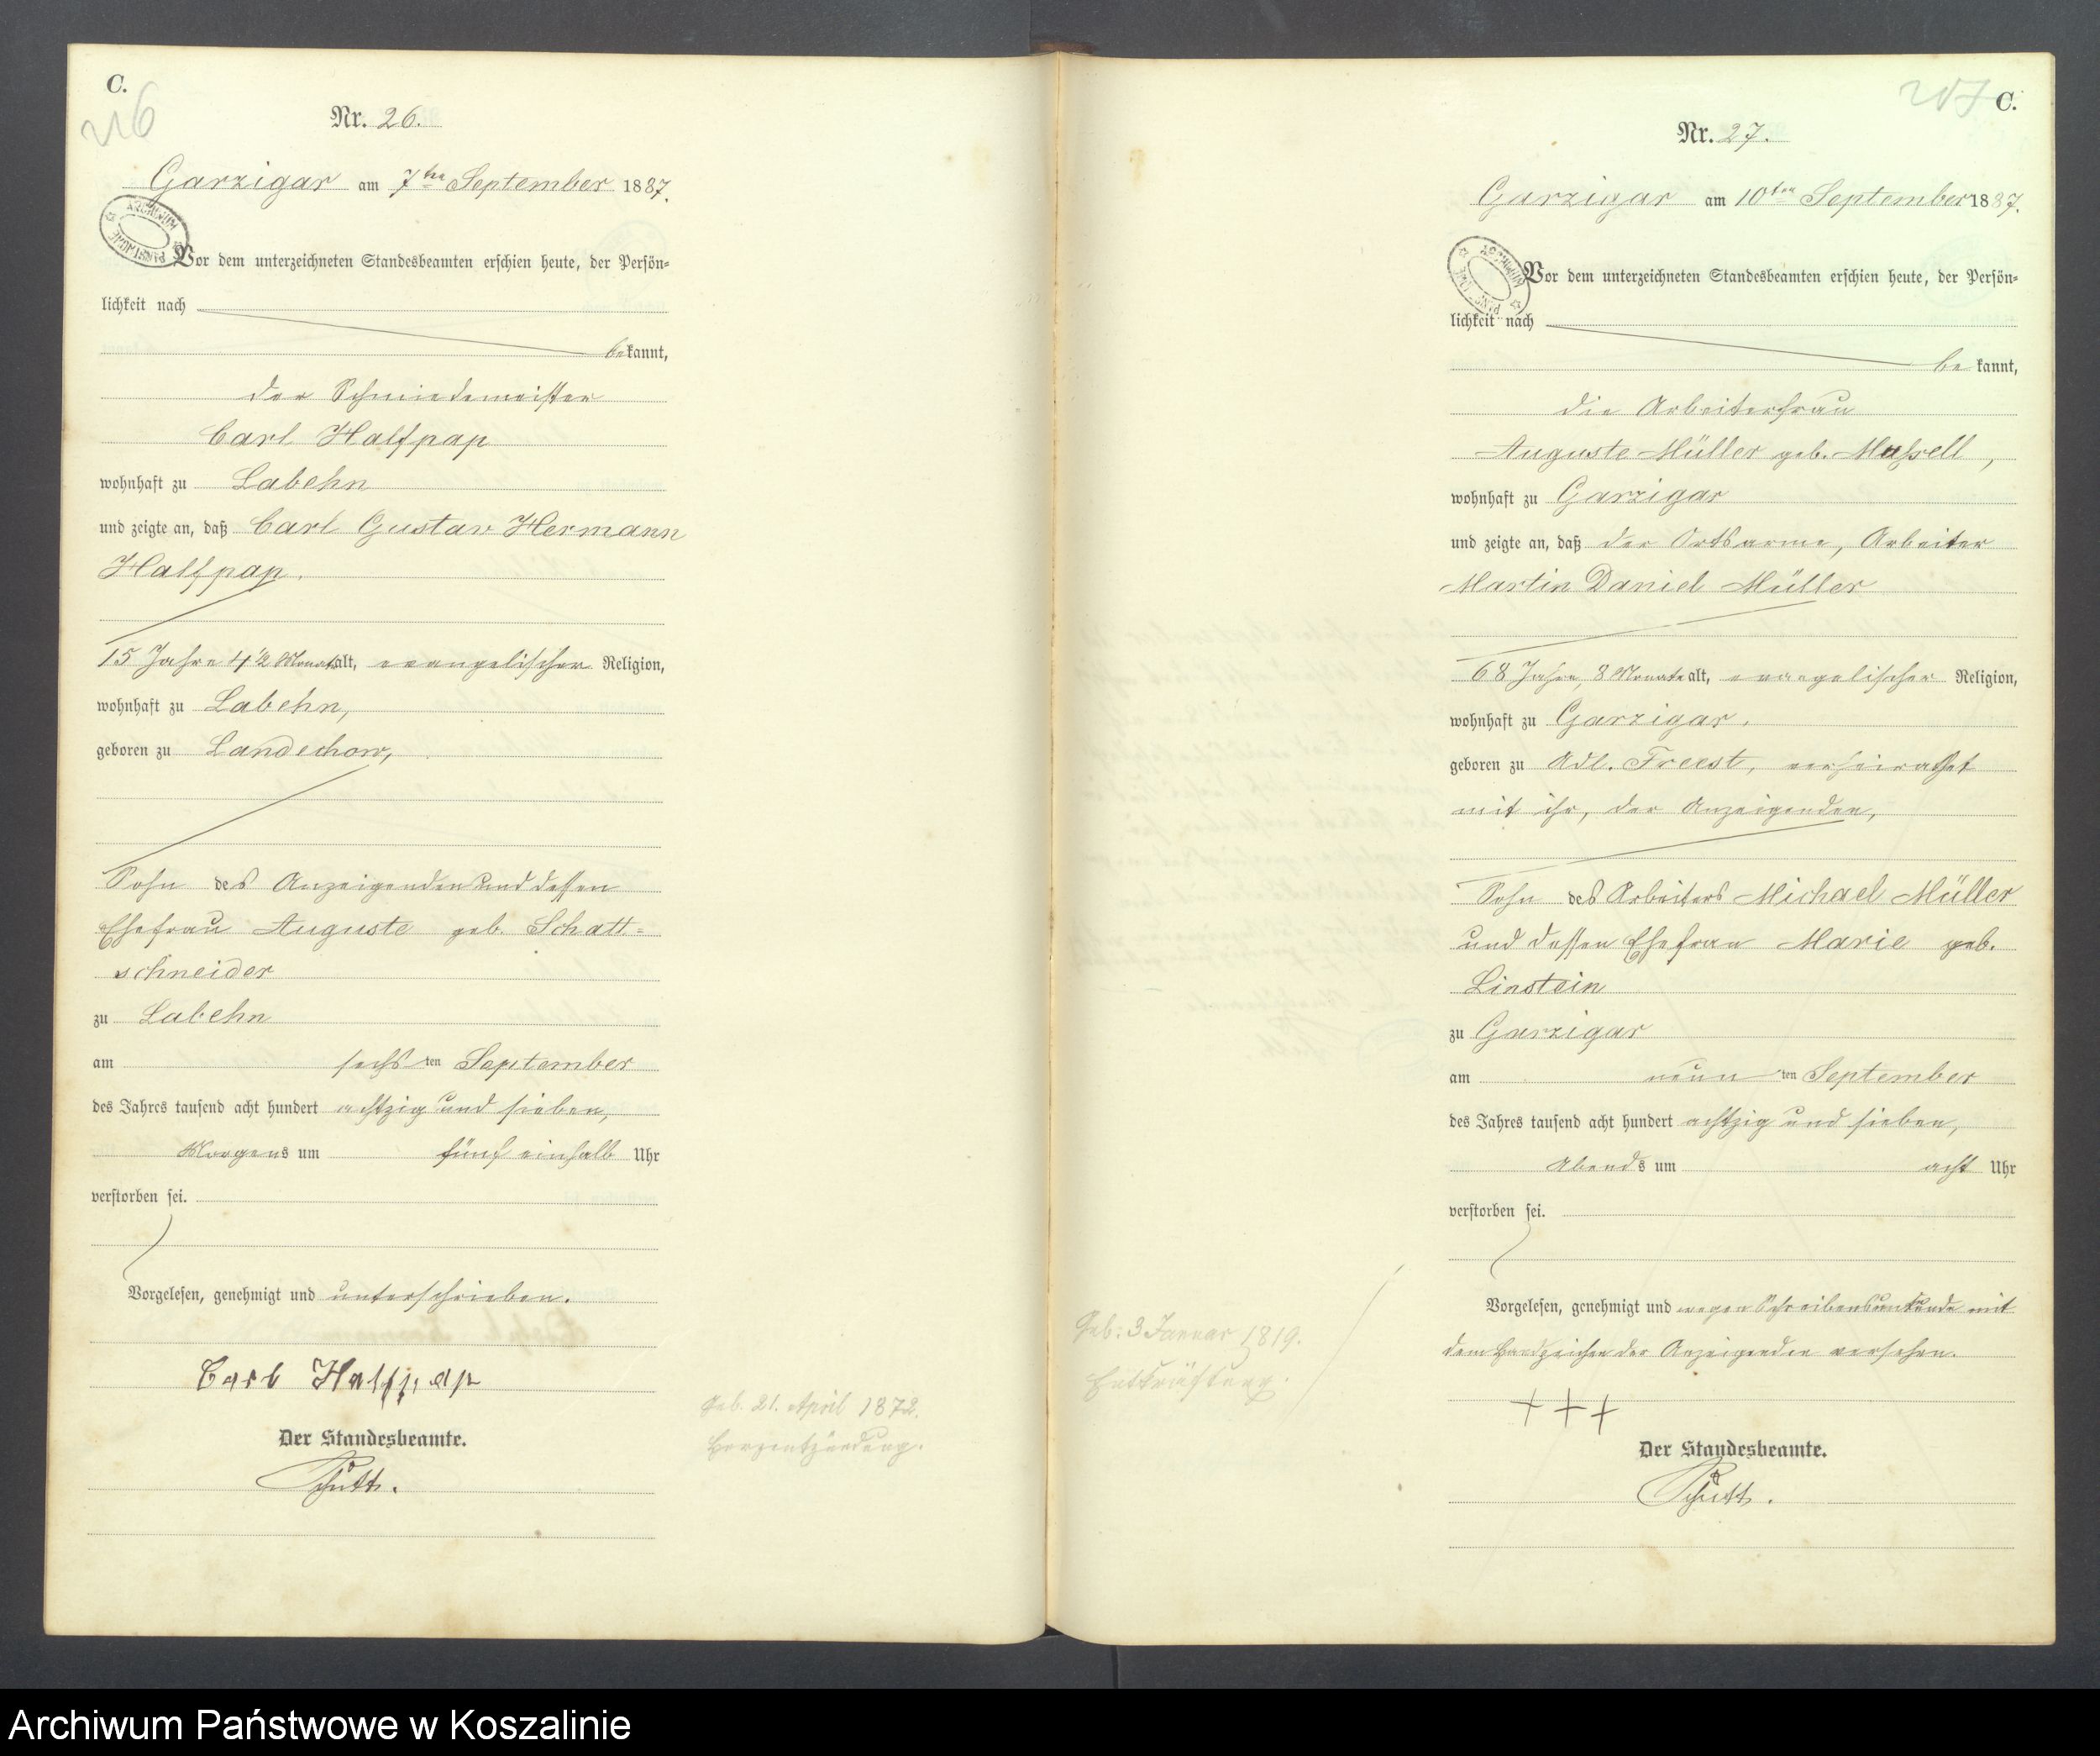 C.
Nr. 26.
Garzigar am 7ten September 1887.
Vor dem unterzeichneten Standesbeamten erschien heute, der Persön-
lichkeit nach
bekannt,
der Schmiedemeister
Carl Halfpap
wohnhaft zu Labehn
und zeigte an, daß Carl Gustav Hermann
Halfpap.
15 Jahre 4 1/2 Monat alt, evangelischer Religion,
wohnhaft zu Labehn,
geboren zu Landechow,
Sohn des Anzeigenden und dessen
Ehefrau Auguste geb. Schatt-
schneider
zu Labehn
am sechsten September
des Jahres tausend acht hundert achtzig und sieben,
Morgens um fünf einhalb Uhr
verstorben sei.
Vorgelesen, genehmigt und unterschrieben.
Carl Halfpap
Der Standesbeamte.
geb. 21. April 1872.
Herzentzündung.
207 C.
Nr. 27.
Garzigar am 10ten September 1887.
Vor dem unterzeichneten Standesbeamten erschien heute, der Persön-
lichkeit nach
bekannt,
die Arbeiterfrau
Auguste Müller geb.
wohnhaft zu Garzigar
und zeigte an, daß der Ortsarme, Arbeiter
Martin Daniel Müller
68 Jahre, 8 Monate alt, evangelischer Religion,
wohnhaft zu Garzigar,
geboren zu Adl. Freest, verheirathet
mit ihr, der Anzeigenden,
Sohn des Arbeiters Michael Müller
und dessen Ehefrau Marie geb.
Linstein
zu Garzigar
am neunten September
des Jahres tausend acht hundert achtzig und sieben,
Abends um acht Uhr
verstorben sei.
Vorgelesen, genehmigt und wegen Schreibensunkunde mit
dem Handzeichen der Anzeigenden versehen.
+++
Der Standesbeamte.
Geb: 3 Januar 1819.
Entkräftung.
Archiwum Państwowe w Koszalinie